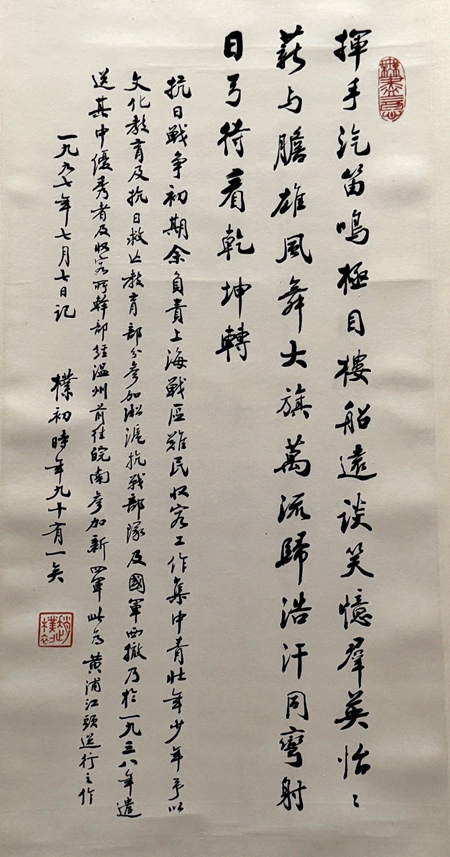 揮手汽笛鳴極目樓船遠談笑憶羣英怡怡
薪与膽雄風舞大旗萬流歸浩汗同彎射
日弓待看乾坤轉
抗日戰爭初期余負責上海戰區難民收容工作集中青壯年少年予以
文化教育及抗日救亡教育部分參加淞滬抗戰部隊及國軍西撤乃於一九三八年遣
送其中優秀者及收容所幹部經溫州前往皖南參加新四軍此為黃浦江頭送行之作
一九九七年七月七日記
樸初時年九十有一矣
趙樸初